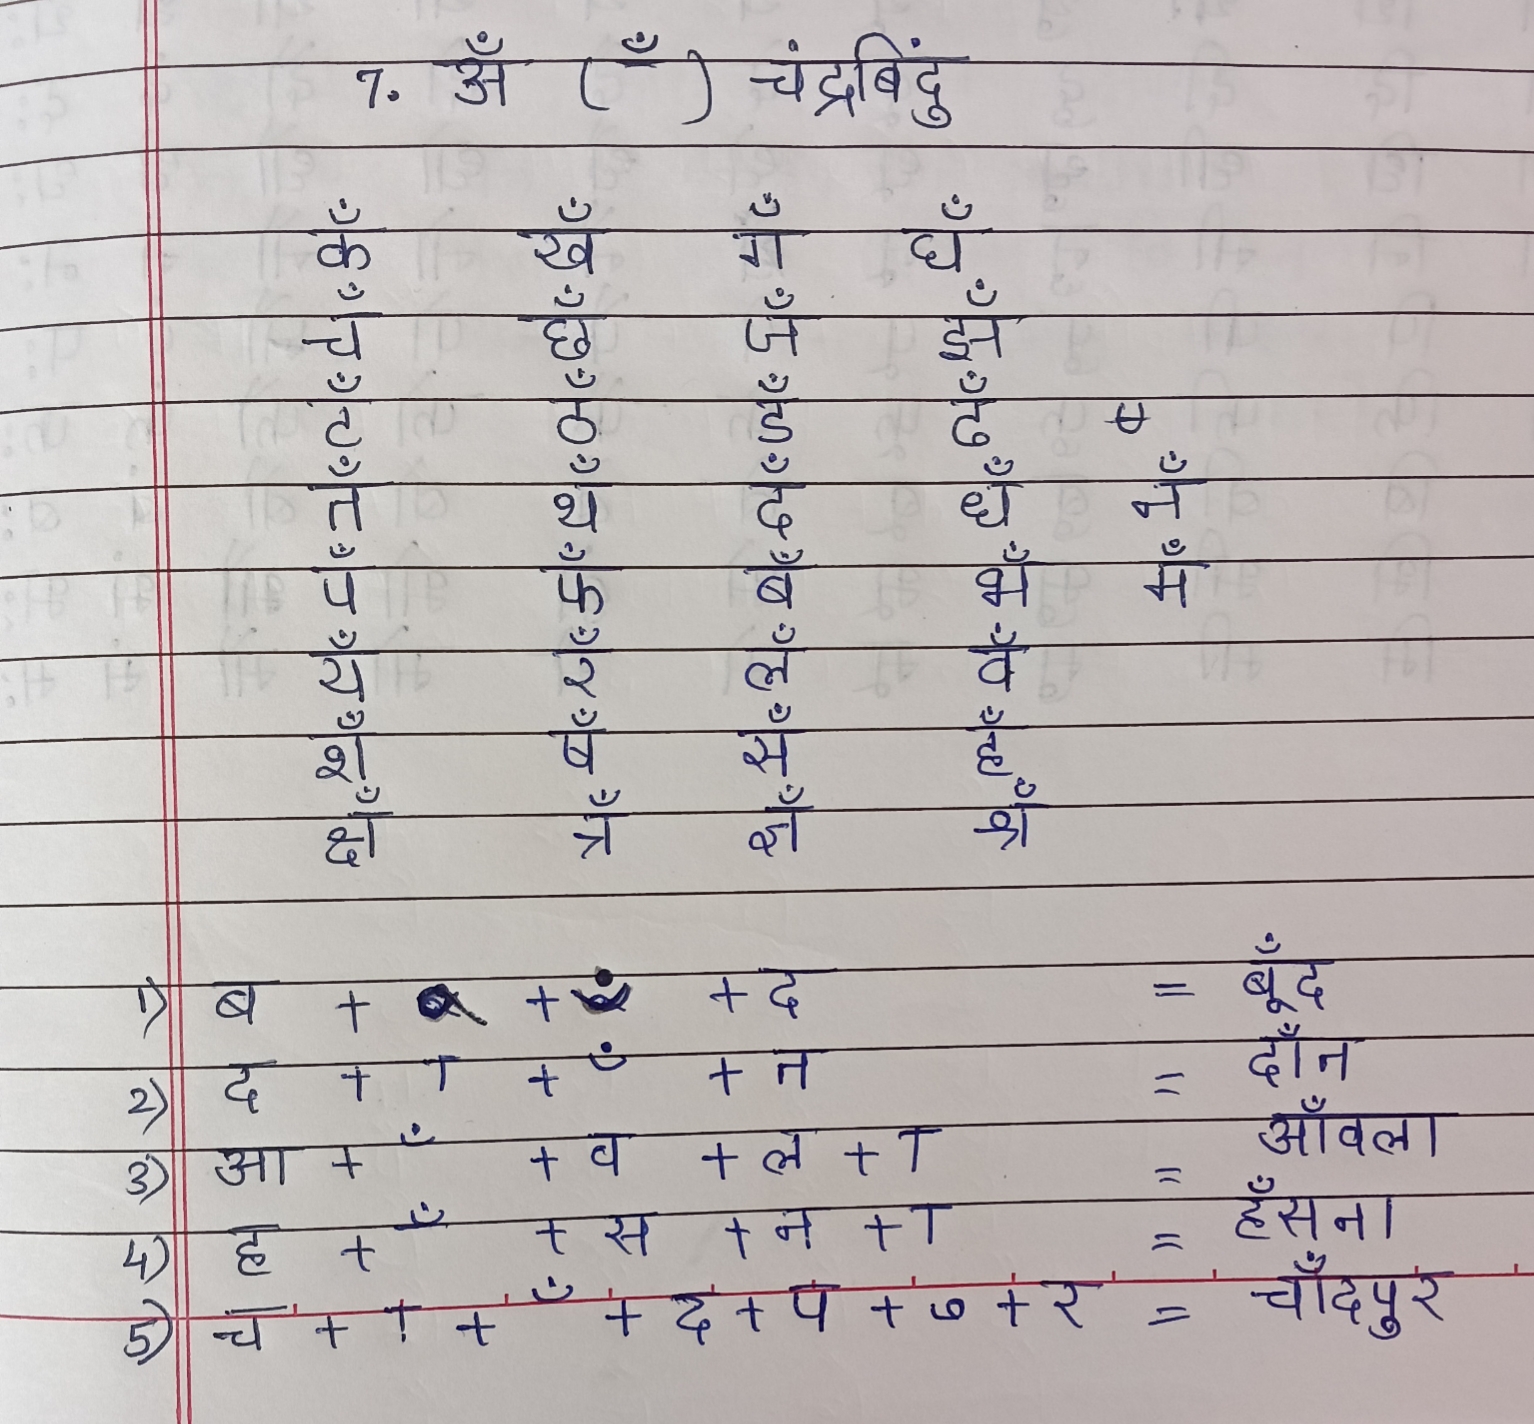 7. अँ ( ँ ) चंद्रबिंदु
कँ खँ गँ घँ
चँ छँ जँ झँ
टँ ठँ डँ ढँ
तँ थँ दँ धँ नँ
पँ फँ बँ भँ मँ
यँ रँ लँ वँ
शँ षँ सँ हँ
क्षँ त्रँ ज्ञँ श्रँ
1) ब + ू + ँ + द = बूँद
2) द + ा + ँ + त = दाँत
3) आ + ँ + व + ल + ा = आँवला
4) ह + ँ + स + न + ा = हँसना
5) च + ा + ँ + द + प + ु + र = चाँदपुर